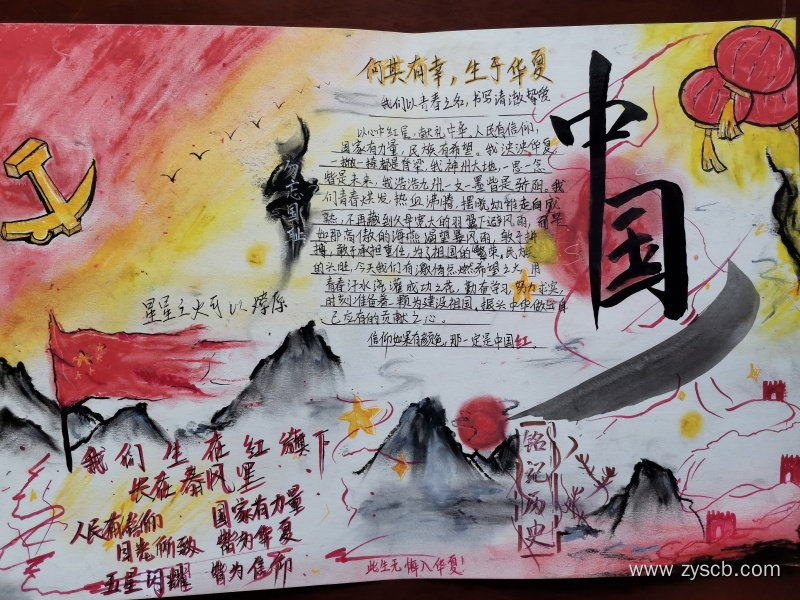 何其有幸，生于华夏
我们以青春之名，书写清澈挚爱
以心中红星，献礼中华，人民有信仰，
国家有力量，民族有希望。我泱泱华夏，
一撇一捺都是脊梁，我神州大地，一思一念
皆是未来，我浩浩九州一文一墨皆是骄阳。我
们青春焕发，热血沸腾，摆脱幼稚走向成
熟，不再藏到父母宽大的羽翼下避风雨，而是
如那高傲的海燕渴望暴风雨，敢于拼
搏，敢于承担重任，为了祖国的繁荣，民族
的兴旺，今天我们有激情点燃希望之火，用
青春汗水浇灌成功之花，勤奋学习，努力求实，
时刻准备着，愿为建设祖国，振兴中华做出自
己应有的贡献之心。
信仰如果有颜色，那一定是中国红。
中国
勿忘国耻
星星之火可以燎原
我们生在红旗下
长在春风里
人民有信仰 国家有力量
目光所致 皆为华夏
五星闪耀 皆为信仰
铭记历史
此生无悔入华夏！
www.zyscb.com